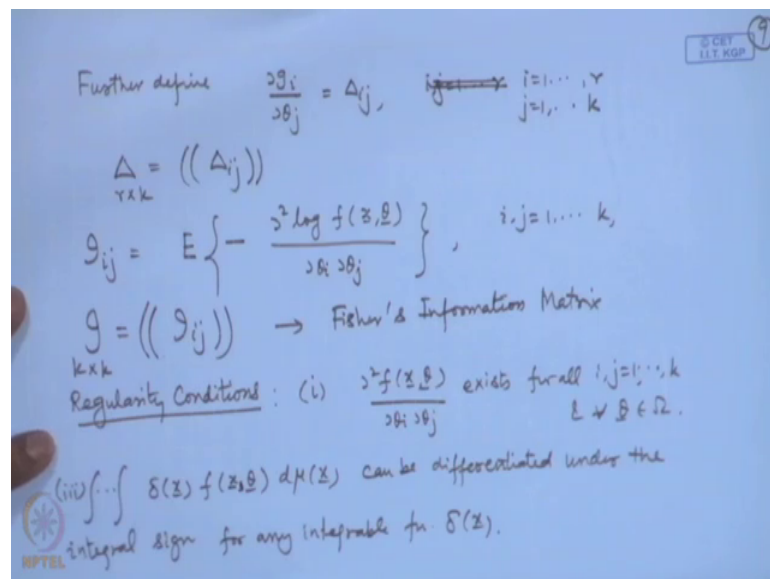 9
© CET
I.I.T. KGP
Further define ∂g_i/∂θ_j = Δ_ij, i=1,..., r
j=1, .. k
Δ_{r×k} = ((Δ_ij))
𝓘_ij = E{ - ∂² log f(x, θ) / ∂θ_i ∂θ_j }, i,j=1,... k,
𝓘_{k×k} = ((𝓘_ij)) → Fisher's Information Matrix
Regularity Conditions : (i) ∂²f(x, θ)/∂θ_i ∂θ_j exists for all i,j=1,..,k
& ∀ θ ∈ Ω.
(iii) ∫...∫ δ(x) f(x, θ) dμ(x) can be differentiated under the
integral sign for any integrable fn. δ(x).
NPTEL